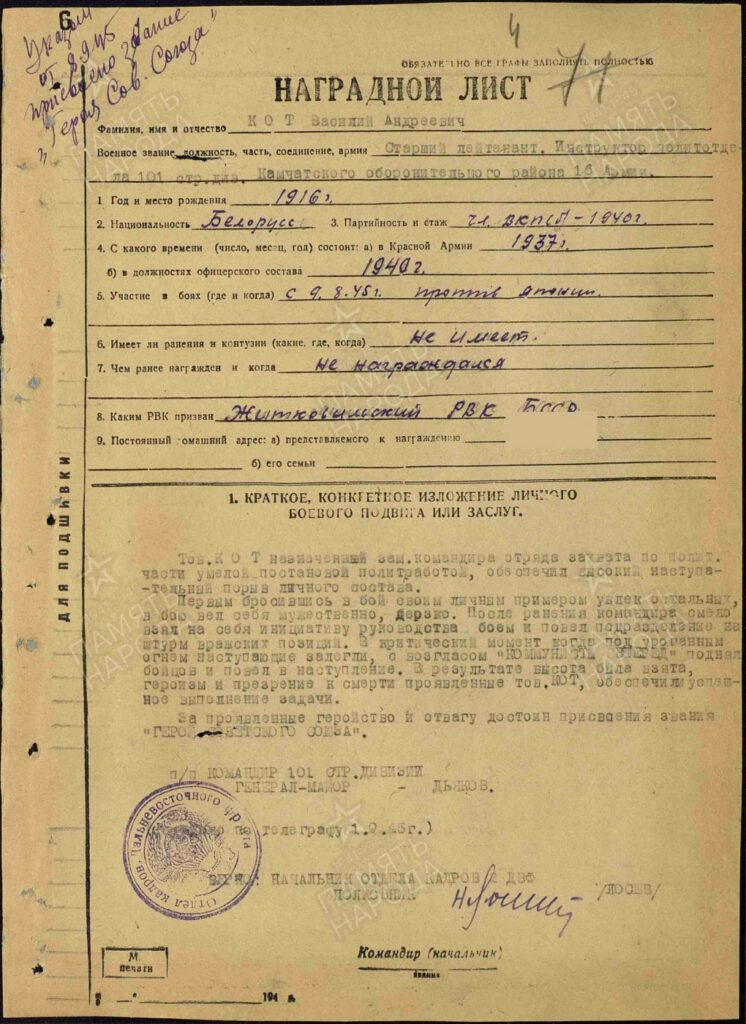 6
Указом
от 8.9.45
присвоено звание
Героя Сов. Союза
4
71
ОБЯЗАТЕЛЬНО ВСЕ ГРАФЫ ЗАПОЛНЯТЬ ПОЛНОСТЬЮ
НАГРАДНОЙ ЛИСТ
Фамилия, имя и отчество КОТ Василий Андреевич
Военное звание, должность, часть, соединение, армия Старший лейтенант. Инструктор политотде-
ла 101 стр.див. Камчатского оборонительного района 16 Армии.
1. Год и место рождения 1916 г.
2. Национальность Белорусс 3. Партийность и стаж чл. ВКП(б) - 1940г.
4. С какого времени (число, месяц, год) состоит: а) в Красной Армии 1937г.
б) в должностях офицерского состава 1940г.
5. Участие в боях (где и когда) с 9.8.45г. против японии.
6. Имеет ли ранения и контузии (какие, где, когда) Не имеет.
7. Чем ранее награжден и когда Не награждался
8. Каким РВК призван Житковичский РВК БССР
9. Постоянный домашний адрес: а) представляемого к награждению
б) его семьи
ДЛЯ ПОДШИВКИ
1. КРАТКОЕ, КОНКРЕТНОЕ ИЗЛОЖЕНИЕ ЛИЧНОГО
БОЕВОГО ПОДВИГА ИЛИ ЗАСЛУГ.
Тов. КОТ назначенный зам.командира отряда захвата по полит.
части умелой постановой политработой, обеспечил высокий наступа-
-тельный порыв личного состава.
Первым бросившись в бой своим личным примером увлек остальных,
в бою вел себя мужественно, дерзко. После ранения командира смело
взял на себя инициативу руководства боем и повел подразделение на
штурм вражских позиций. В критический момент когда под ураганным
огнем наступающие залегли, с возгласом "КОММУНИСТЫ ВПЕРЕД" поднял
бойцов и повел в наступление. В результате высота была взята,
героизм и презрение к смерти проявленные тов.КОТ, обеспечили успеш-
ное выполнение задачи.
За проявленные геройство и отвагу достоин присвоения звания
"ГЕРОЙ СОВЕТСКОГО СОЮЗА".
п/п КОМАНДИР 101 СТР.ДИВИЗИИ
ГЕНЕРАЛ-МАЙОР - ДЬЯКОВ.
по телеграфу 1.9.45г.)
Отдел кадров Дальневосточного фронта
ВЕРНО: НАЧАЛЬНИК ОТДЕЛА КАДРОВ 2 ДВФ
ПОЛКОВНИК /ЛОСЕВ/
М.
печати
Командир (начальник)
звание
194 г.
ПАМЯТЬ
НАРОДА